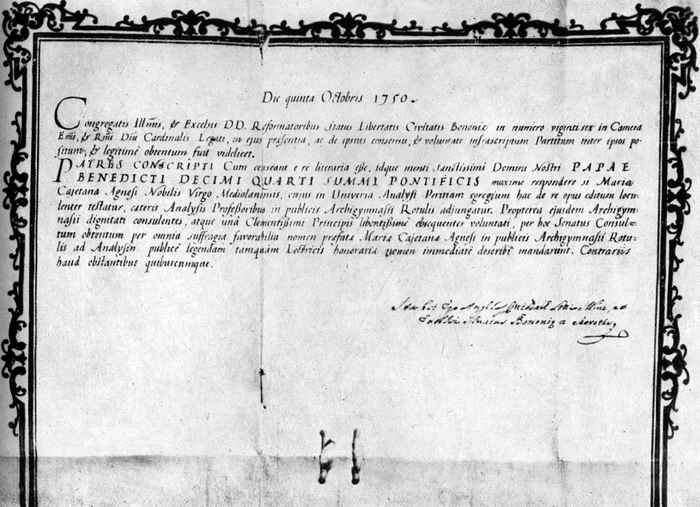 Die quinta Octobris 1750.
Congregatis Illmis, & Excelsis DD. Reformatoribus Status Libertatis Civitatis Bononiæ in numero viginti sex in Camera
Emi, & Rmi Dni Cardinalis Legati, in ejus præsentia, ac de ipsius consensu, & voluntate infrascriptum Partitum inter ipsos po-
situm, & legitimè obtentum fuit videlicet.
PATRES CONSCRIPTI Cum censeant e re literaria esse, idque menti Sanctissimi Domini Nostri PAPAE
BENEDICTI DECIMI QUARTI SUMMI PONTIFICIS maxime respondere si Maria
Cajetana Agnesi Nobilis Virgo Mediolanensis, cujus in Universa Analysi Peritiam egregium hac de re opus editum locu-
lenter testatur, cæteris Analysis Professoribus in publicis Archigymnasii Rotulis adjungatur. Propterea ejusdem Archigym-
nasii dignitati consulentes, atque unà Clementissimi Principis libentissimè obsequentes voluntati, per hoc Senatus Consul-
tum obtentum per omnia suffragia favorabilia nomen præfatæ Mariæ Cajetanæ Agnesi in publicis Archigymnasii Rotu-
lis ad Analysin publicè legendam tamquam Lectricis honorariæ nomen immediatè describi mandarunt. Contrariis
haud obstantibus quibuscumque.
Ita est Ego
Senatus Bononiæ a Secretis